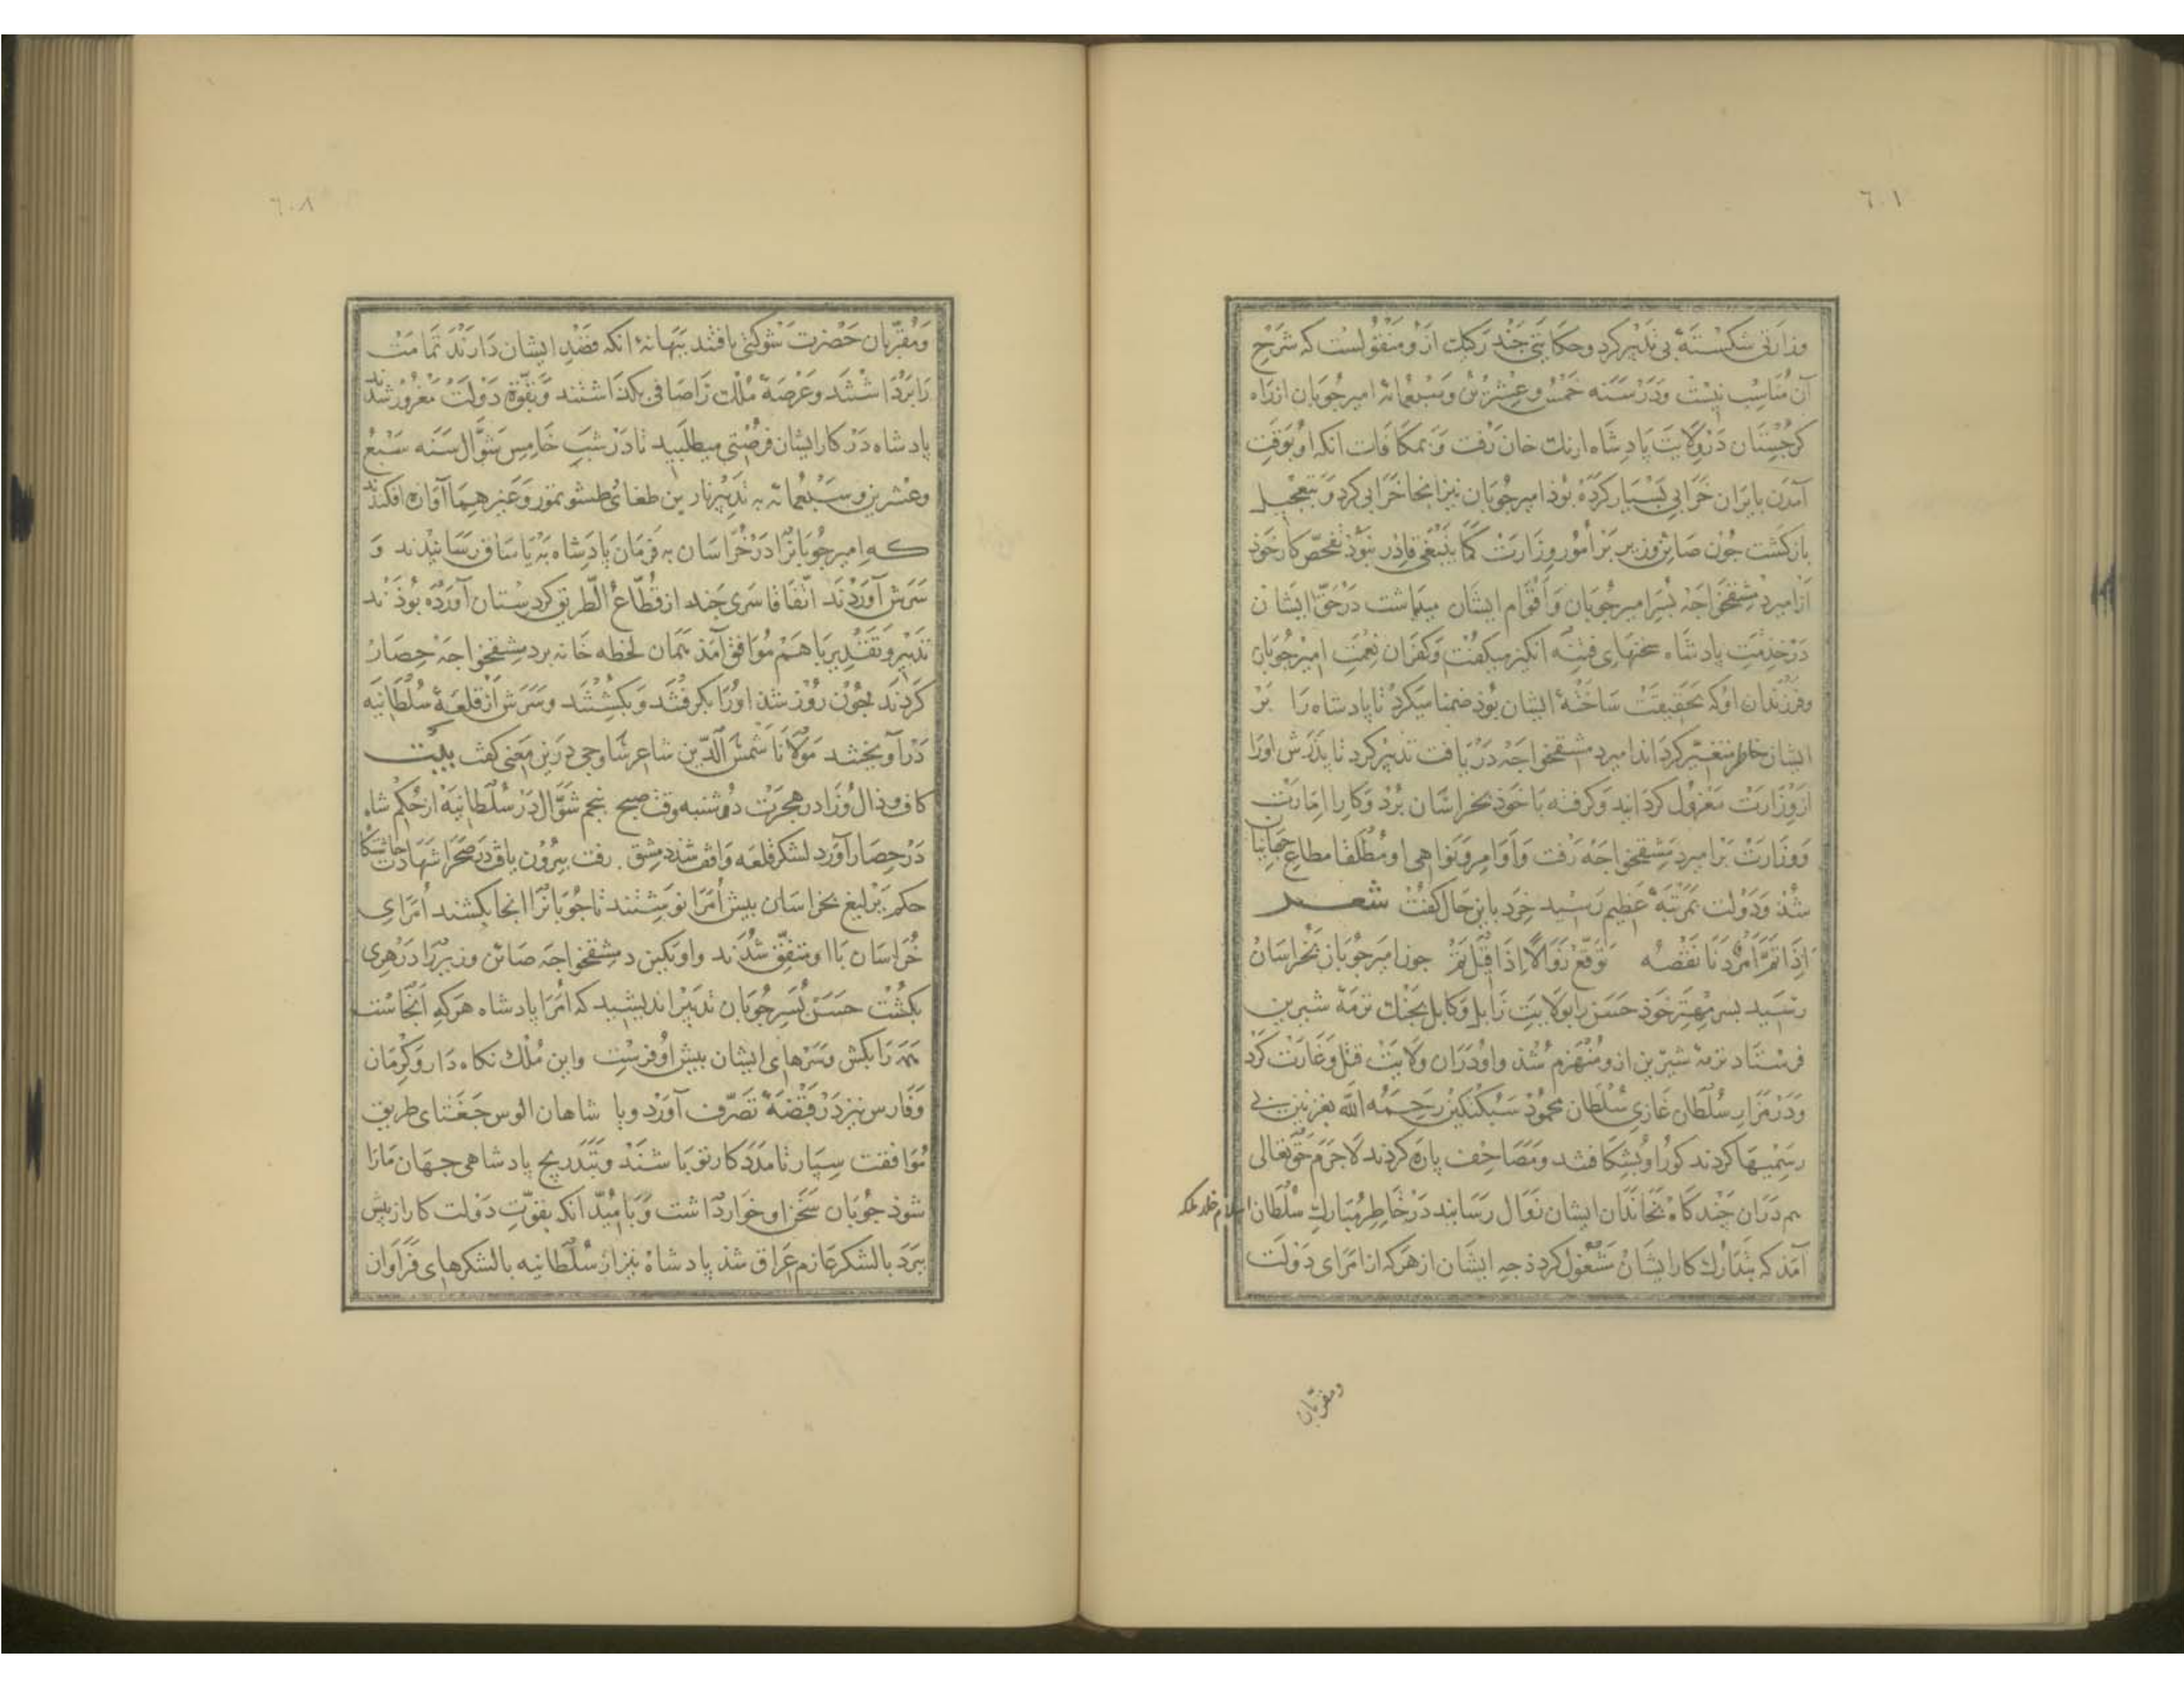 ٦٠١
وزارتی شکسته بی تدبیر کرد وحکایتی چند رکیک از و منقولست که شرح
آن مناسب نیست ودر سنه خمس وعشرین وسبعمائه امیر جوبان از راه
کرجستان در ولایت پادشاه ازبک خان رفت و بمکافات انکه او بوقت
آمدن بایران خرابی بسیار کرده بوذ امیر جوبان نیز انجا خرابی کرد و بتعجیل
بازکشت جون صاین وزیر بر امور وزارت کما ینبغی قادر نبوذ تفحص کار خوذ
از امیر دمشقخواجه بسر امیر جوبان و اقوام ایشان میداشت در حق ایشان
در خدمت پادشاه سخنهای فتنه انکیز میکفت و کفران نعمت امیر جوبان
وفرزندان او که بحقیقت ساخته ایشان بوذ ضمنا میکرد تا پادشاه را بر
ایشان خاطر متغیر کرداند امیر دمشقخواجه دریافت تدبیر کرد تا بدرش اورا
از وزارت معزول کردانید و کرفته با خوذ بخراسان برد و کار امارت
ووزارت بر امیر دمشقخواجه رفت و اوامر و نواهی او مطلقا مطاع جهانیان
شذ ودولت بمرتبه عظیم رسید خرد باین حال کفت شعر
اذا تم امر دنا نقصه توقع زوالا اذا قیل تم جون امیر جوبان بخراسان
رسید بسر مهتر خوذ حسن را بولایت زابل و کابل بجنک ترمه شیرین
فرستاد ترمه شیرین ازو منهزم شذ و او دران ولایت قتل و غارت کرد
ودر مزار سلطان غازی سلطان محموذ سبکتکین رحمه الله بغزنین بی
رسمیها کردند کور او بشکافتند ومصاحف پاره کردند لاجرم حق تعالی
هم دران چند کاه بخاندان ایشان زوال رسانید در خاطر مبارک سلطان اسلام خلد ملکه
آمذ که بتدارک کار ایشان مشغول کردذ چه ایشان از هرکه از امرای دولت
ومقربان
٦٠٨
ومقربان حضرت شوکتی یافتند ببهانۀ انکه قصد ایشان دارند تمامت
را برداشتند وعرصه ملک را صافی بکذاشتند وبقوة دولت مغرور شدند
پادشاه در کار ایشان فرصتی میطلبید تا در شب خامس شوال سنه سبع
وعشرین وسبعمائه به تدبیر نارین طغای وطشتمور وغیرهما آوازه افکندند
که امیر جوبانرا در خراسان به فرمان پادشاه به یاساق رسانیدند و
سرش آوردند اتفاقا سری چند از قطاع الطریق کردستان آورده بوذند
تدبیر وتقدیر با هم موافق آمذ همان لحظه خانه بر دمشقخواجه حصار
کردند چون روز شذ اورا بکرفتند و بکشتند وسرش از قلعه سلطانیه
در آویختند مولانا شمس الدین شاعر ساوجی درین معنی کفت بیت
کاف وذال وزا در هجرت دوشنبه وقت صبح پنجم شوال در سلطانیه از حکم شاه
در حصار آورد لشکر قلعه واقف شد دمشق رفت بیرون یافت در صحرا شهادت جاشتکاه
حکم یرلیغ بخراسان پیش امرا نوشتند تا جوبانرا انجا بکشند امرای
خراسان با او متفق شدند واو بکین دمشقخواجه صاین وزیر را در هری
بکشت حسن بسر جوبان تدبیر اندیشید که امرا پادشاه هرکه انجاست
همه را بکش وسرهای ایشان پیش او فرست واین ملک نکاه دار وکرمان
وفارس نیز در قبضه تصرف آورد وبا شاهان الوس جغتای طریق
موافقت سپار تا مدد کار تو باشند وبتدریج پادشاهی جهان مارا
شوذ جوبان سخن او خوار داشت وبامید انکه بقوت دولت کار از پیش
ببرد با لشکر عازم عراق شذ پادشاه نیز از سلطانیه با لشکرهای فراوان